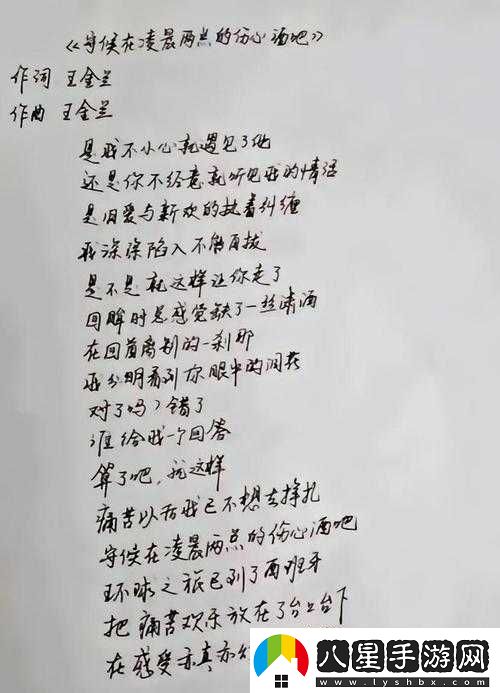 《守候在凌晨两点的伤心酒吧》
作词 王金兰
作曲 王金兰
是我不小心就遇见了他
还是你不经意就听见我的情话
是旧爱与新欢的执着纠缠
我深深陷入不能自拔
是不是就这样让你走了
回眸时总感觉缺了一丝潇洒
在回首离别的一刹那
我分明看到你眼中的泪花
对了吗？错了
谁给我一个回答
算了吧，就这样
痛苦以后我已不想去挣扎
守候在凌晨两点的伤心酒吧
环球之旅已到了西班牙
把痛苦欢乐放在了台上台下
在感受亦真亦
八星手游网
www.lyshbx.com